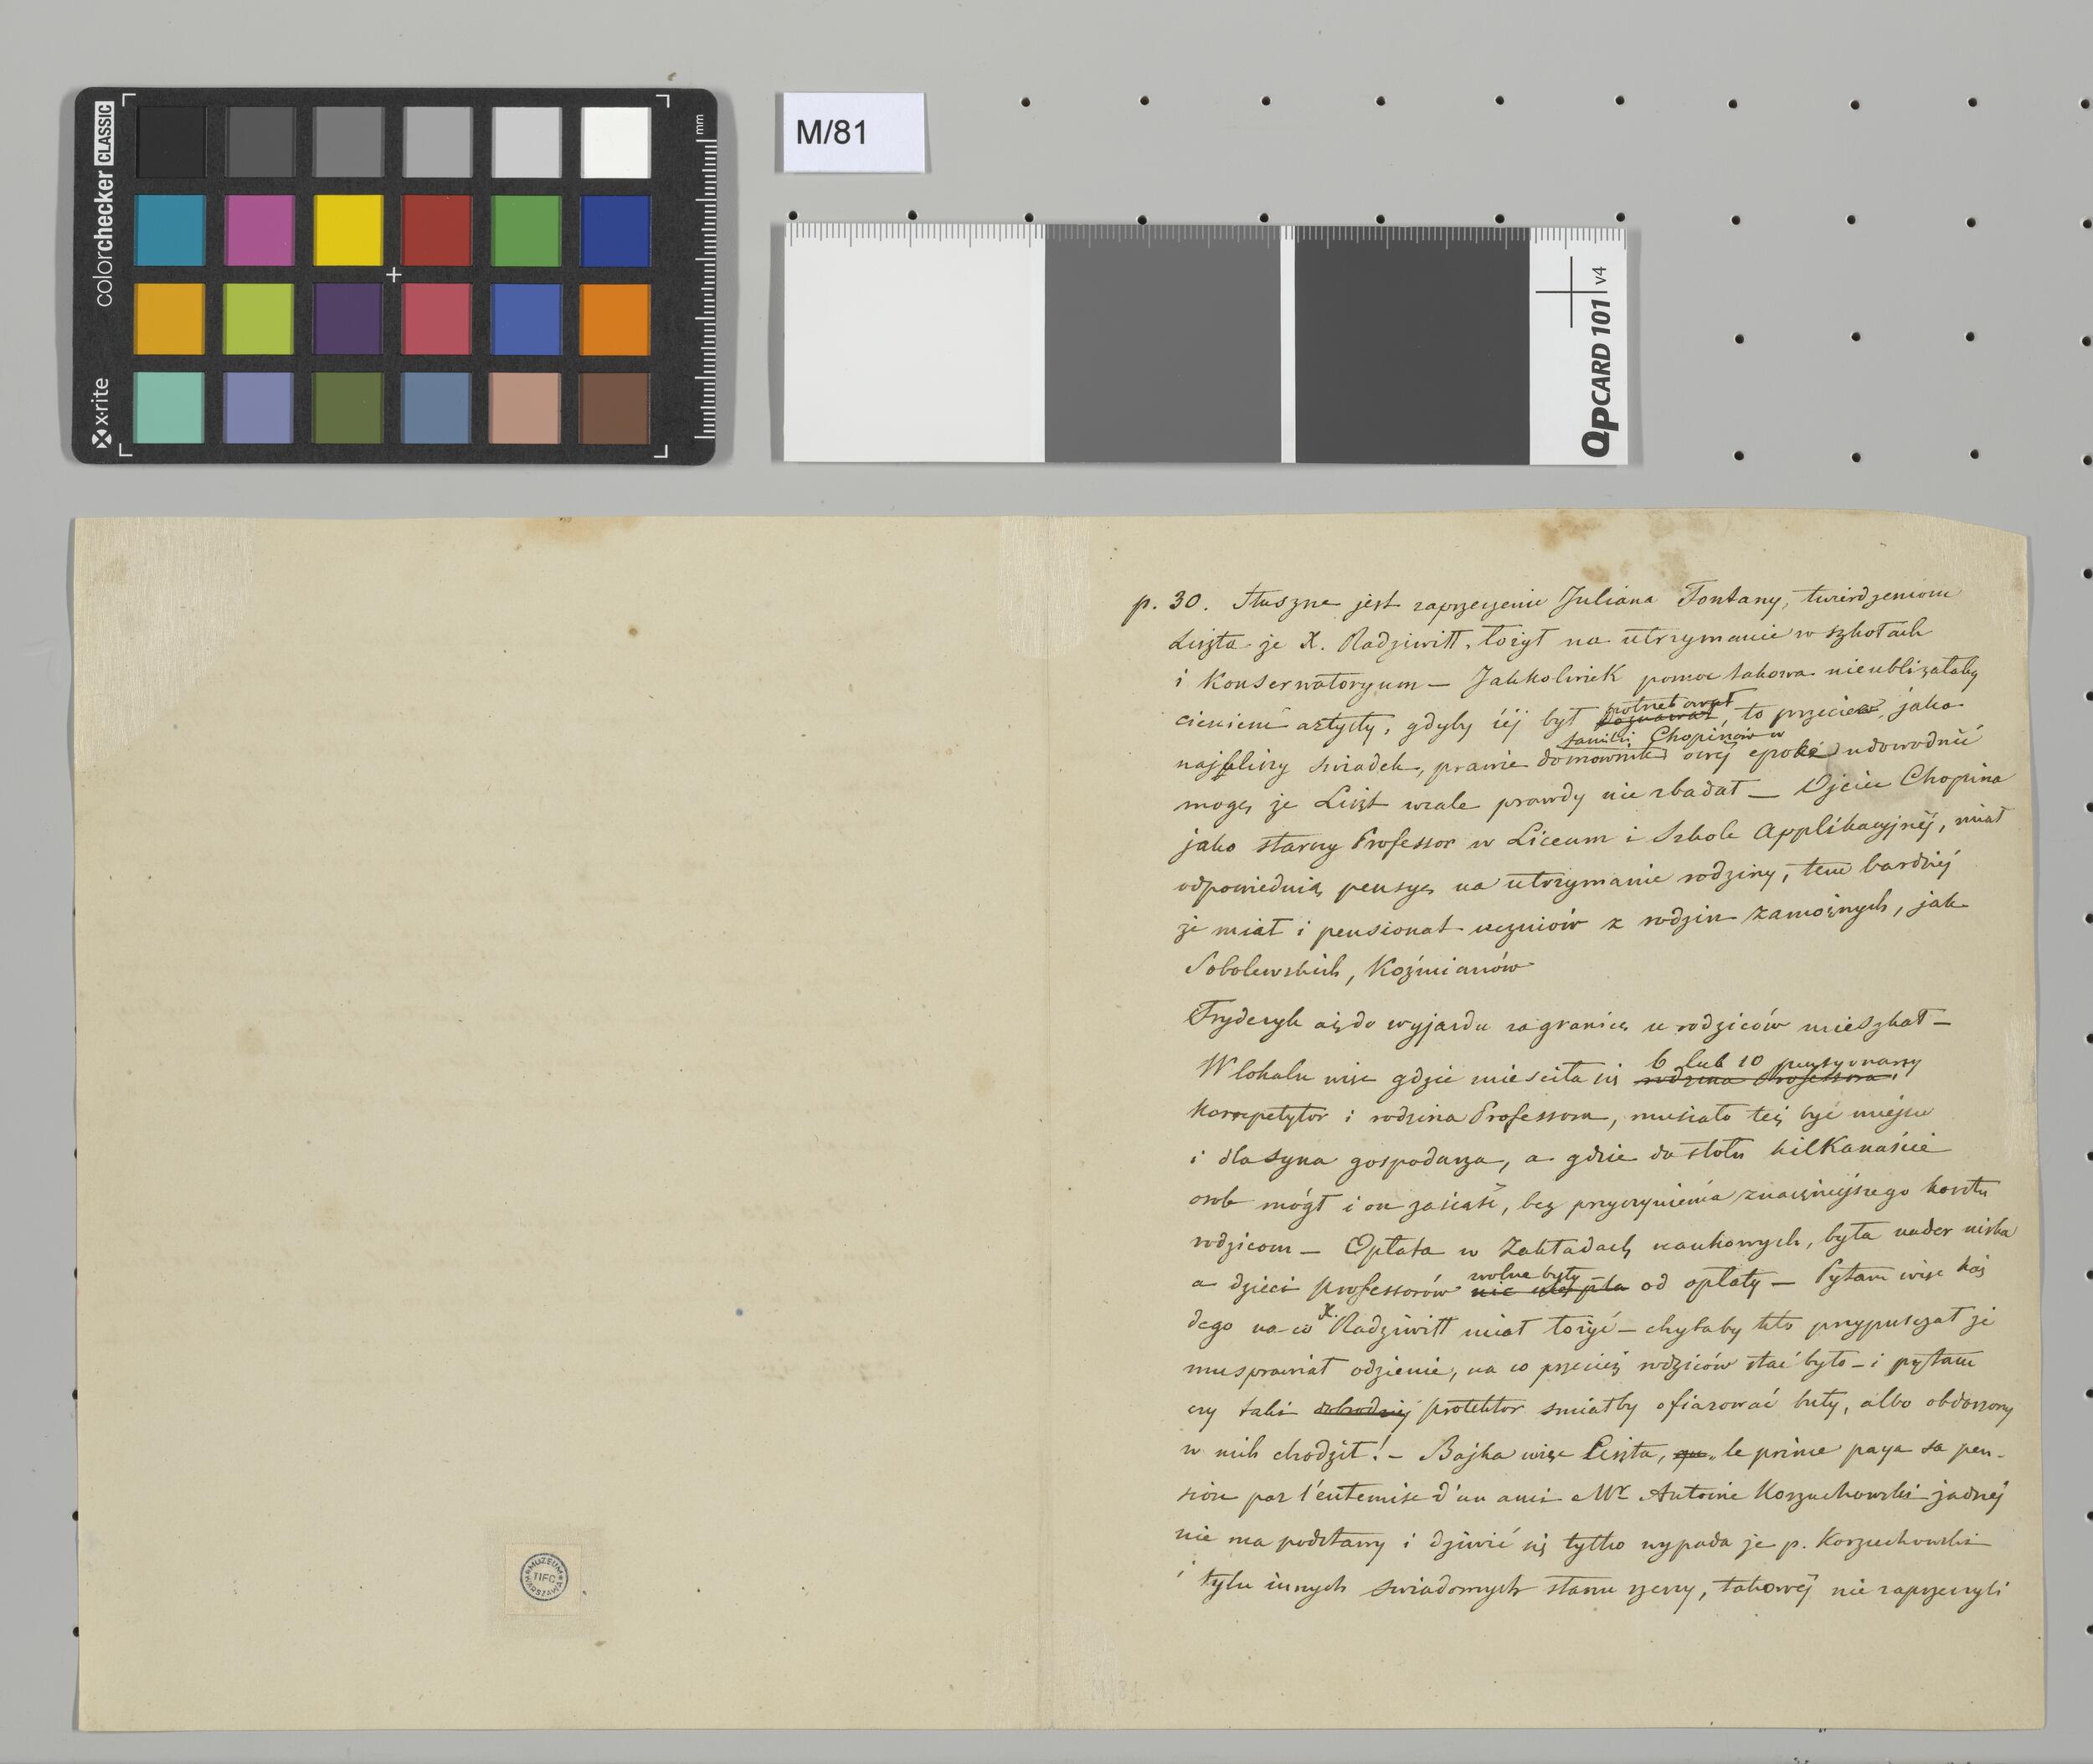 colorchecker CLASSIC
x·rite
mm
M/81
QPCARD 101 v4
p. 30. Słuszne jest zaprzeczenie Juliana Fontany, twierdzeniom
Liszta że X. Radziwiłł łożył na utrzymanie w szkołach
i Konserwatoryum — Jakkolwiek pomoc takowa nieubliżałaby
cieniem artysty, gdyby jéj był potrzebował, to przeciez, jako
familii Chopinów w
najbliższy swiadek, prawie domownik owéj epoki udowodnić
mogę że Liszt wcale prawdy nie zbadał — Ojciec Chopina
jako starszy Professor w Liceum i Szkole Applikacyjnéj, miał
odpowiednią pensyę na utrzymanie rodziny, tem bardziéj
że miał i pensionat uczniów z rodzin zamożnych, jak
Sobolewskich, Koźmianów
Fryderyk aż do wyjazdu zagranicę u rodziców mieszkał —
6 lub 10 pensyonarzy
W lokalu więc gdzie mieściła się rodzina Professora,
korrepetytor i rodzina Professora, musiało też być miejsce
i dla syna gospodarza, a gdzie do stołu kilkanaście
osob mógł i on zasiąść, bez przyczynienia znaczniejszego kosztu
rodzicom — Opłata w Zakładach naukowych, była nader niska
wolne były
a dzieci professorów od opłaty — Pytam więc każ
dego na co X. Radziwiłł miał łożyć — chybaby kto przypuszczał że
mu sprawiał odzienie, na co przecież rodziców stać było — i pytam
czy taki protektor smiałby ofiarować buty, albo obdarzony
w nich chodził! — Bajka więc Liszta, „le prince paya sa pen-
sion par l'entemise d'un ami Mr Antoine Korzuchowski żadnéj
nie ma podstawy i dziwić się tylko wypada że p. Korzuchowski
i tylu innych swiadomych stanu rzeczy, takowéj nie zaprzeczyli
MUZEUM
TIFC
WARSZAWA